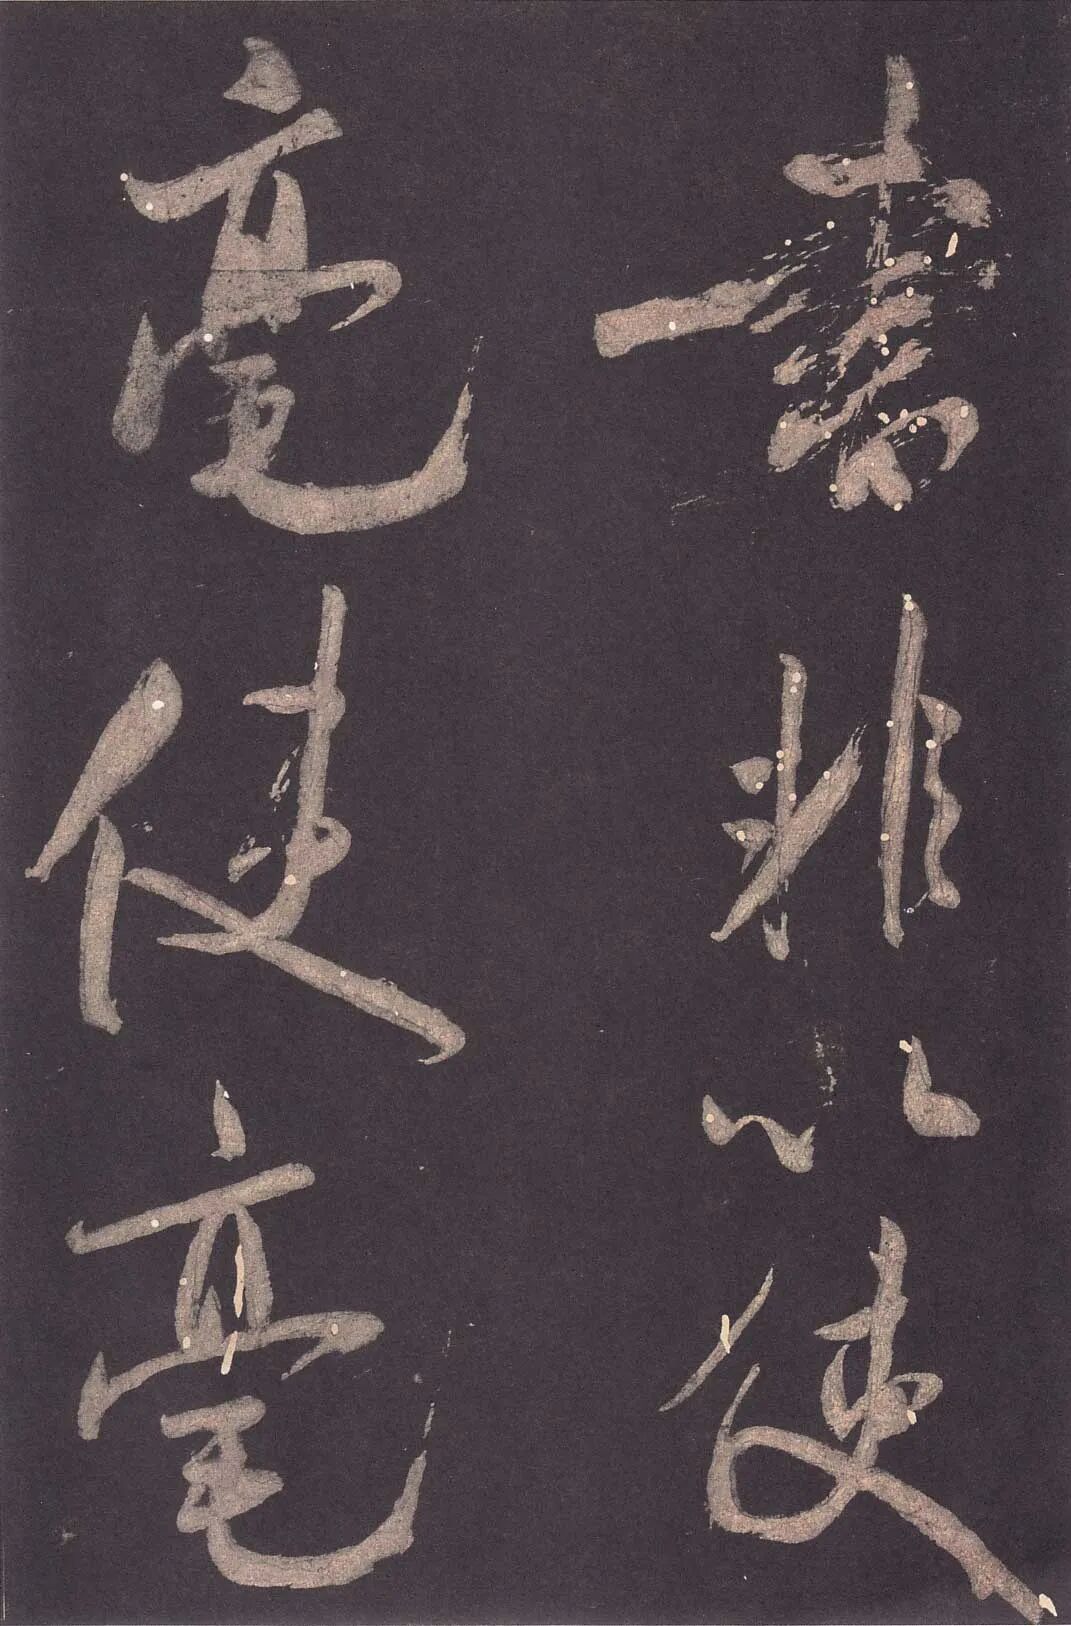 書非以使
毫使毫